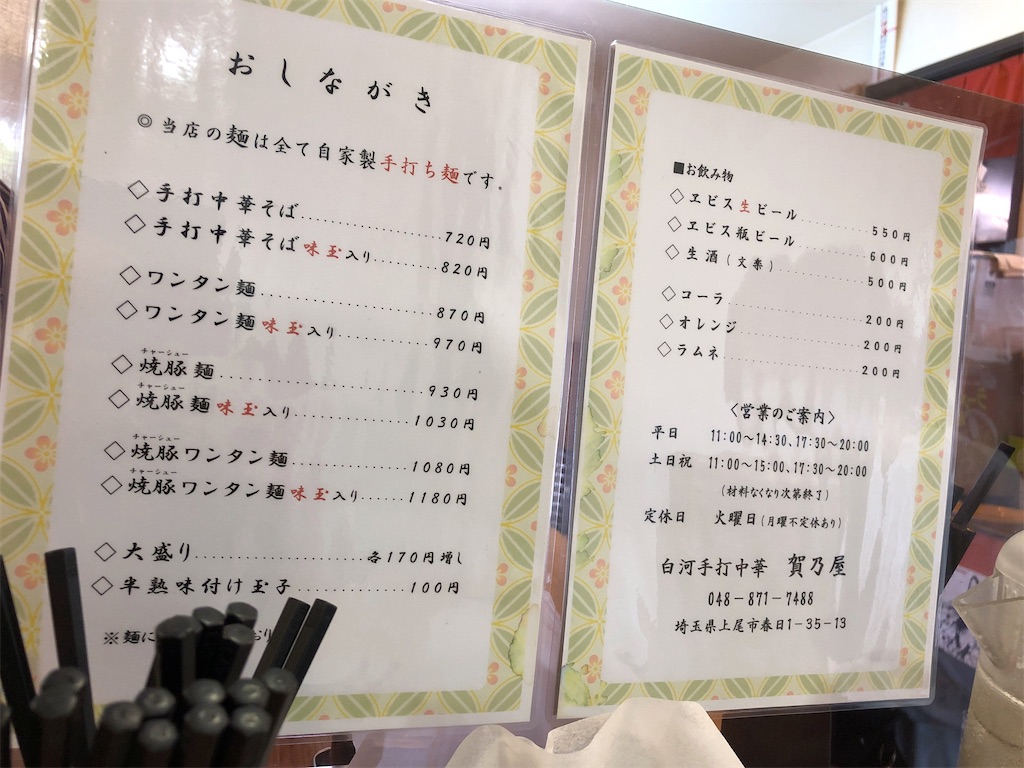 おしながき
◎当店の麺は全て自家製手打ち麺です。
◇手打中華そば....................720円
◇手打中華そば味玉入り.........820円
◇ワンタン麺.........................870円
◇ワンタン麺味玉入り...............970円
チャーシュー
◇焼豚麺..............................930円
チャーシュー
◇焼豚麺味玉入り..................1030円
チャーシュー
◇焼豚ワンタン麺..................1080円
チャーシュー
◇焼豚ワンタン麺味玉入り......1180円
◇大盛り........................各170円増し
◇半熟味付け玉子..................100円
※麺に
■お飲み物
◇ヱビス生ビール............550円
◇ヱビス瓶ビール............600円
◇生酒(文楽)..................500円
◇コーラ........................200円
◇オレンジ.....................200円
◇ラムネ........................200円
〈営業のご案内〉
平日 11:00〜14:30、17:30〜20:00
土日祝 11:00〜15:00、17:30〜20:00
(材料なくなり次第終了)
定休日 火曜日(月曜不定休あり)
白河手打中華 賀乃屋
048-871-7488
埼玉県上尾市春日1-35-13